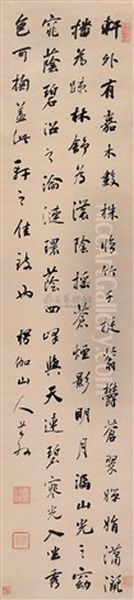 軒外有嘉木數株脩竹千挺蓊鬱蒼翠嬋娟瀟灑
播為疏林飾為濃陰搖蒼煙影明月漏山光之窈
窕蔭碧沼之淪漣環蔭四嶂與天連碧寒光入坐秀
色可掬蓋此軒之佳致也 楞伽山人